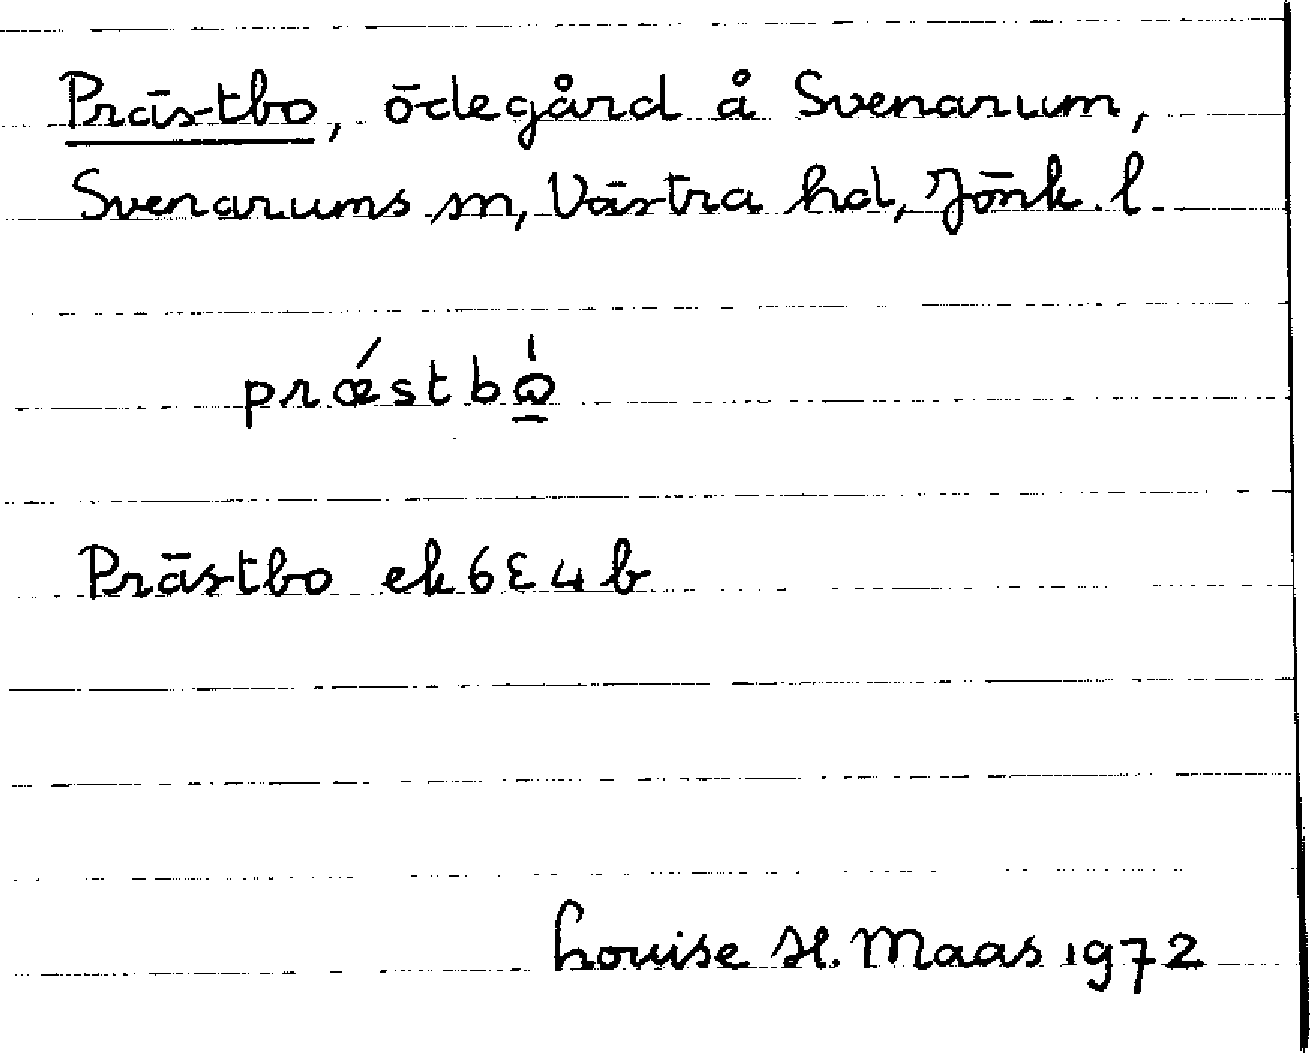 Prästbo, ödegård å Svenarum,
Svenarums sn, Västra hd, Jönk. l.
prǽstbω̲̍
Prästbo ek 6E4b
Louise H. Maas 1972